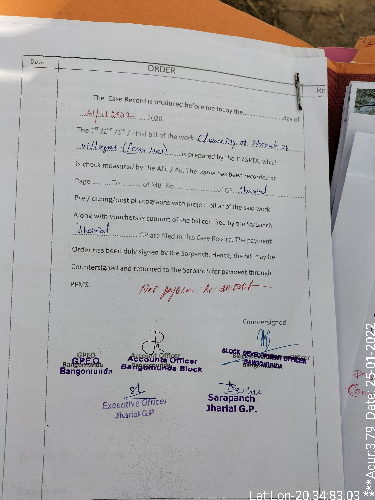 Date
ORDER
The Case Record is produced before me today the ............ day of
............ 2020.
The 1st /2nd /3rd / Final bill of the work Cleaning of Street of
villages (Four no) is prepared by the JE/GPTA, which
is check measured by the AEE / BE. The same has been recorded at
Page ........ To ........ of MB No. ............ of GP. Jharial
Pre / during/post photographs with project pillar of the said work
Along with vouchers in support of the bill certified by the Sarpanch
Jharial ............ GP are filed in this Case Record. The payment
Order has been duly signed by the Sarpanch. Hence, the bill may be
Countersigned and returned to the Sarpanch for payment through
PFMS.
Countersigned
GPEO
Bangomunda
Accounts Officer
Bangomunda Block
BLOCK DEVELOPMENT OFFICER
BANGOMUNDA
Executive Officer
Jharial G.P.
Sarapanch
Jharial G.P.
Lat Lon-20.34.83.03
***Acur:3.79, Date: 25-01-2022